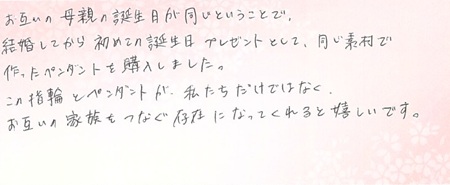 お互いの母親の誕生日が同じということで、
結婚してから初めての誕生日プレゼントとして、同じ素材で
作ったペンダントを購入しました。
この指輪とペンダントが、私たちだけではなく、
お互いの家族をつなぐ存在になってくれると嬉しいです。